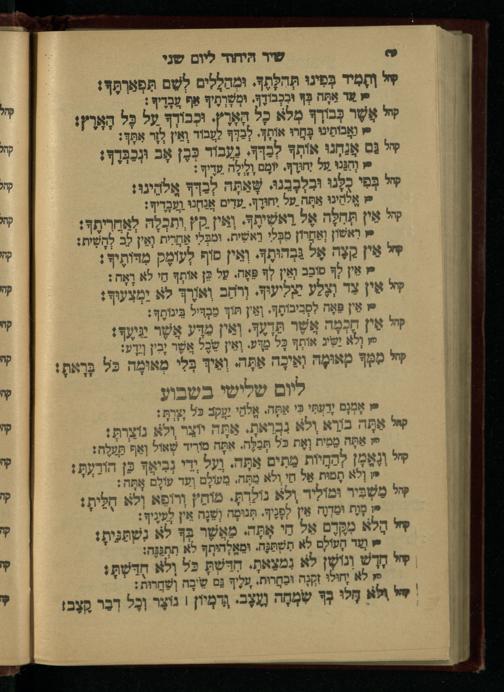 ח שיר היחוד ליום שני
קהל וְתָמִיד בְּפִינוּ תְּהִלָּתֶךָ. וּמְהַלְלִים לְשֵׁם תִּפְאַרְתֶּךָ:
חזן עַד אַתָּה בָּךְ וּבִכְבוֹדָךְ. וּמְשָׁרְתֶיךָ אַף עֲבָדֶיךָ:
קהל אֲשֶׁר כְּבוֹדְךָ מְלֹא כָל הָאָרֶץ. וּכְבוֹדְךָ עַל כָּל הָאָרֶץ:
חזן וַאֲבוֹתֵינוּ בָּחֲרוּ אוֹתְךָ. לְבַדְּךָ לַעֲבוֹד וְאֵין לְזָר אִתָּךְ:
קהל גַּם אֲנַחְנוּ אוֹתְךָ לְבַדֶּךָ. נַעֲבוֹד כְּבֵן אָב וּנְכַבְּדֶךָ:
חזן וְהִנֵּנוּ עַל יִחוּדֶךָ. יוֹמָם וָלַיְלָה עֵדֶיךָ:
קהל בְּפִי כֻלָּנוּ וּבִלְבָבֵנוּ. שֶׁאַתָּה לְבַדְּךָ אֱלֹהֵינוּ:
חזן אֱלֹהֵינוּ אַתָּה עַל יִחוּדֶךָ. עֵדִים אֲנַחְנוּ וַעֲבָדֶיךָ:
קהל אֵין תְּחִלָּה אֶל רֵאשִׁיתֶךָ. וְאֵין קֵץ וְתִכְלָה לְאַחֲרִיתֶךָ:
חזן רִאשׁוֹן וְאַחֲרוֹן מִבְּלִי רֵאשִׁית. וּמִבְּלִי אַחֲרִית וְאֵין לֵב לְהָשִׁית:
קהל אֵין קָצֶה אֶל גַּבְהוּתֶךָ. וְאֵין סוֹף לְעוֹמֶק מִדּוֹתֶיךָ:
חזן אֵין לְךָ סוֹבֵב וְאֵין לְךָ פֵּאָה. עַל כֵּן אוֹתְךָ חַי לֹא רָאָה:
קהל אֵין צַד וְצֵלָע יַצְלִיעוּךָ. וְרֹחַב וְאוֹרֶךְ לֹא יַמְצִעוּךָ:
חזן אֵין פֵּאָה לִסְבִיבוֹתֶיךָ. וְאֵין תּוֹךְ מַבְדִּיל בֵּינוֹתֶיךָ:
קהל אֵין חָכְמָה אֲשֶׁר תֵּדָעֶךָ. וְאֵין מַדָּע אֲשֶׁר יַגִּיעֶךָ:
חזן וְלֹא יַשִּׂיג אוֹתְךָ כָּל מַדָּע. וְאֵין שֵׂכֶל אֲשֶׁר יָבִין וְיֵדָע:
קהל מִמְּךָ מְאוּמָה וְאֵיכָה אַתָּה. וְאֵיךְ בְּלִי מְאוּמָה כֹּל בָּרָאתָ:
ליום שלישי בשבוע
חזן אָמְנָם יָדַעְתִּי כִּי אַתָּה. אֱלֹהֵי יַעֲקֹב כֹּל יָצָרְתָּ:
קהל אַתָּה בוֹרֵא וְלֹא נִבְרֵאתָ. אַתָּה יוֹצֵר וְלֹא נוֹצָרְתָּ:
חזן אַתָּה מֵמִית וְאֶת כֹּל תְּבַלֶּה. אַתָּה מוֹרִיד שְׁאוֹל וְאַף תַּעֲלֶה:
קהל וְנֶאֱמָן לְהַחֲיוֹת מֵתִים אַתָּה. וְעַל יְדֵי נְבִיאֲךָ כֵּן הוֹדַעְתָּ:
חזן וְלֹא תָמוּת אֵל חַי וְלֹא מַתָּה. מֵעוֹלָם וְעַד עוֹלָם אָתָּה:
קהל מַשְׁבִּיר וּמוֹלִיד וְלֹא נוֹלַדְתָּ. מוֹחֵץ וְרוֹפֵא וְלֹא חָלִיתָ:
חזן מָוֶת וּמַדְוֶה אֵין לְפָנֶיךָ. תְּנוּמָה וְשֵׁנָה אֵין לְעֵינֶיךָ:
קהל הֲלֹא מִקֶּדֶם אֵל חַי אָתָּה. מֵאֲשֶׁר בְּךָ לֹא נִשְׁתַּנֵּיתָ:
חזן וְעַד הָעוֹלָם לֹא תִשְׁתַּנֶּה. וּמֵאֱלָהוּתְךָ לֹא תִתְגַּנֶּה:
קהל חָדָשׁ וְנוֹשָׁן לֹא נִמְצֵאתָ. חִדַּשְׁתָּ כֹּל וְלֹא חֻדַּשְׁתָּ:
חזן לֹא יָחוּלוּ זִקְנָה וּבַחֲרוּת. עָלֶיךָ גַּם שֵׂיבָה וְשַׁחֲרוּת:
קהל וְלֹא חָלוּ בְךָ שִׂמְחָה וָעֶצֶב. וְדִמְיוֹן נוֹצָר וְכָל דְּבַר קָצֶב: